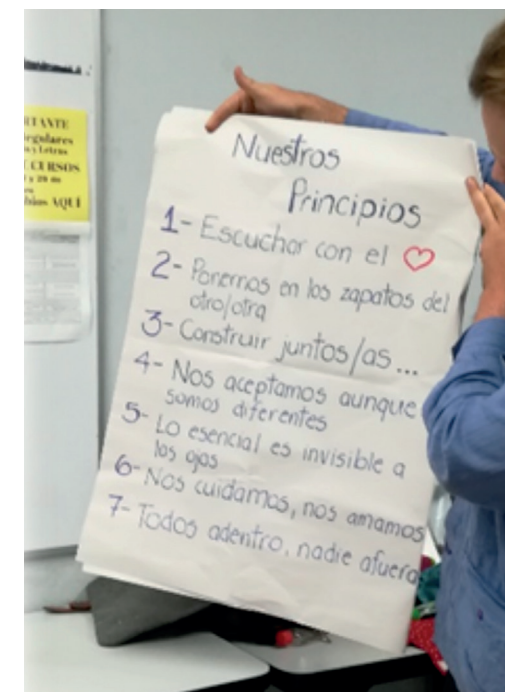 TANTE
egulares
y Letras
CURSOS
AQUÍ
Nuestros
Principios
1- Escuchar con el ♡
2- Ponernos en los zapatos del
otro/otra
3- Construir juntos/as...
4- Nos aceptamos aunque
somos diferentes
5- Lo esencial es invisible a
los ojos
6- Nos cuidamos, nos amamos
7- Todos adentro, nadie afuera